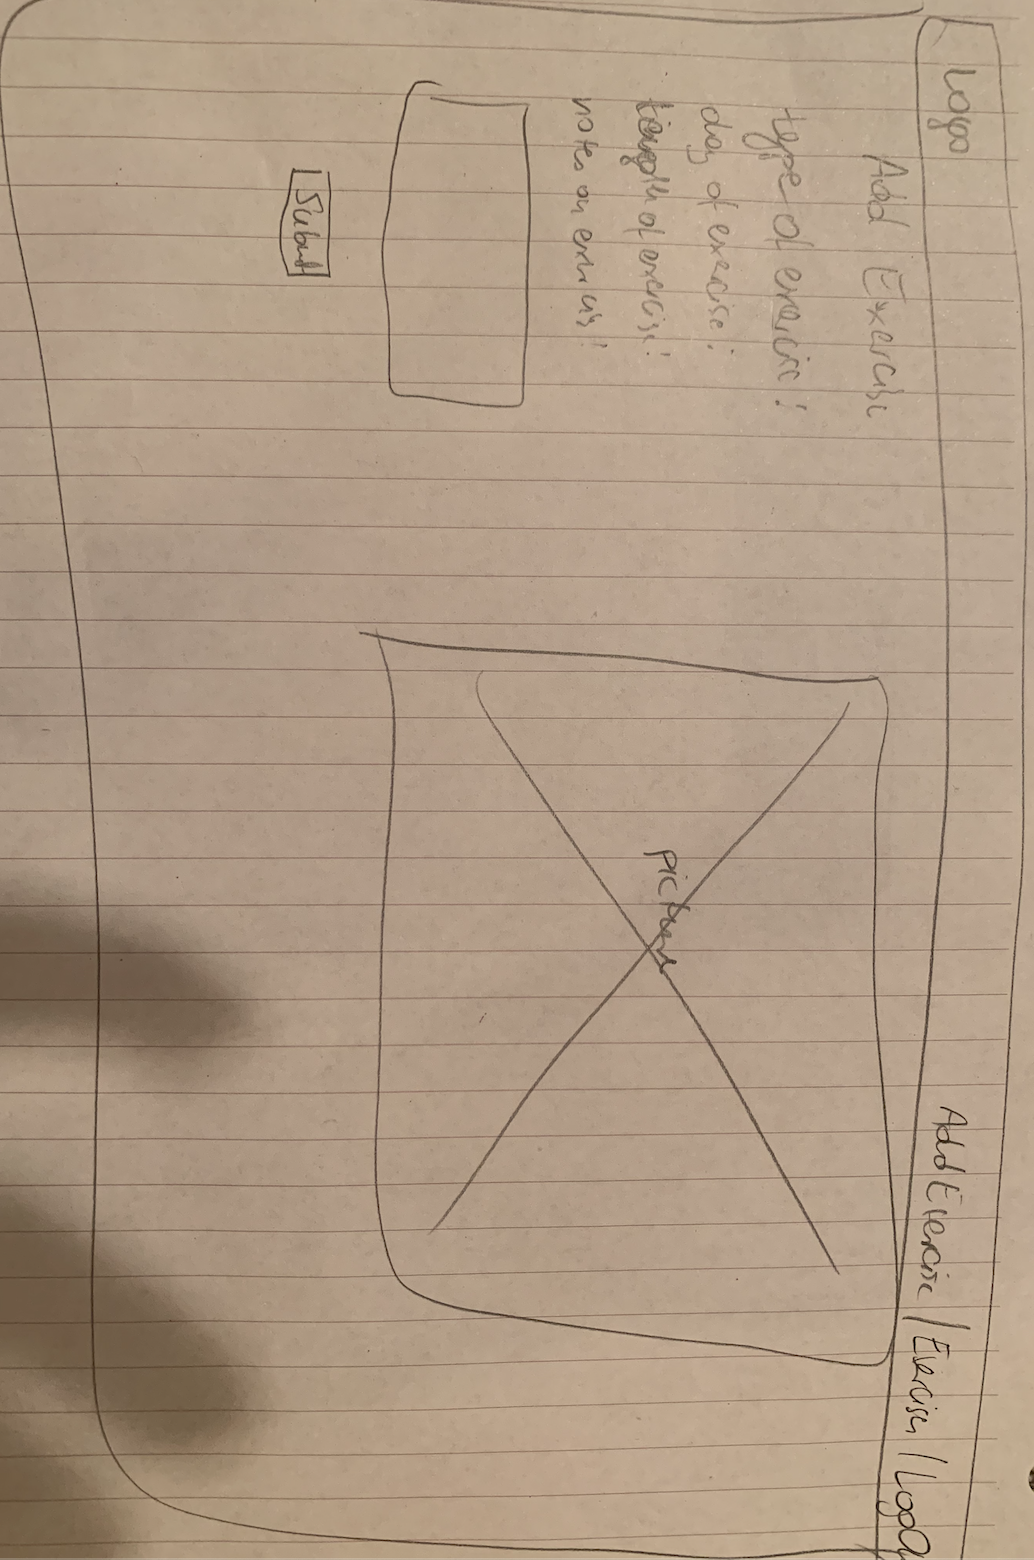 Logo
Add Exercise | Exercises | LogO
Add Exercise
type of exercise:
day of exercise:
length of exercise:
notes on exercise:
Submit
picture